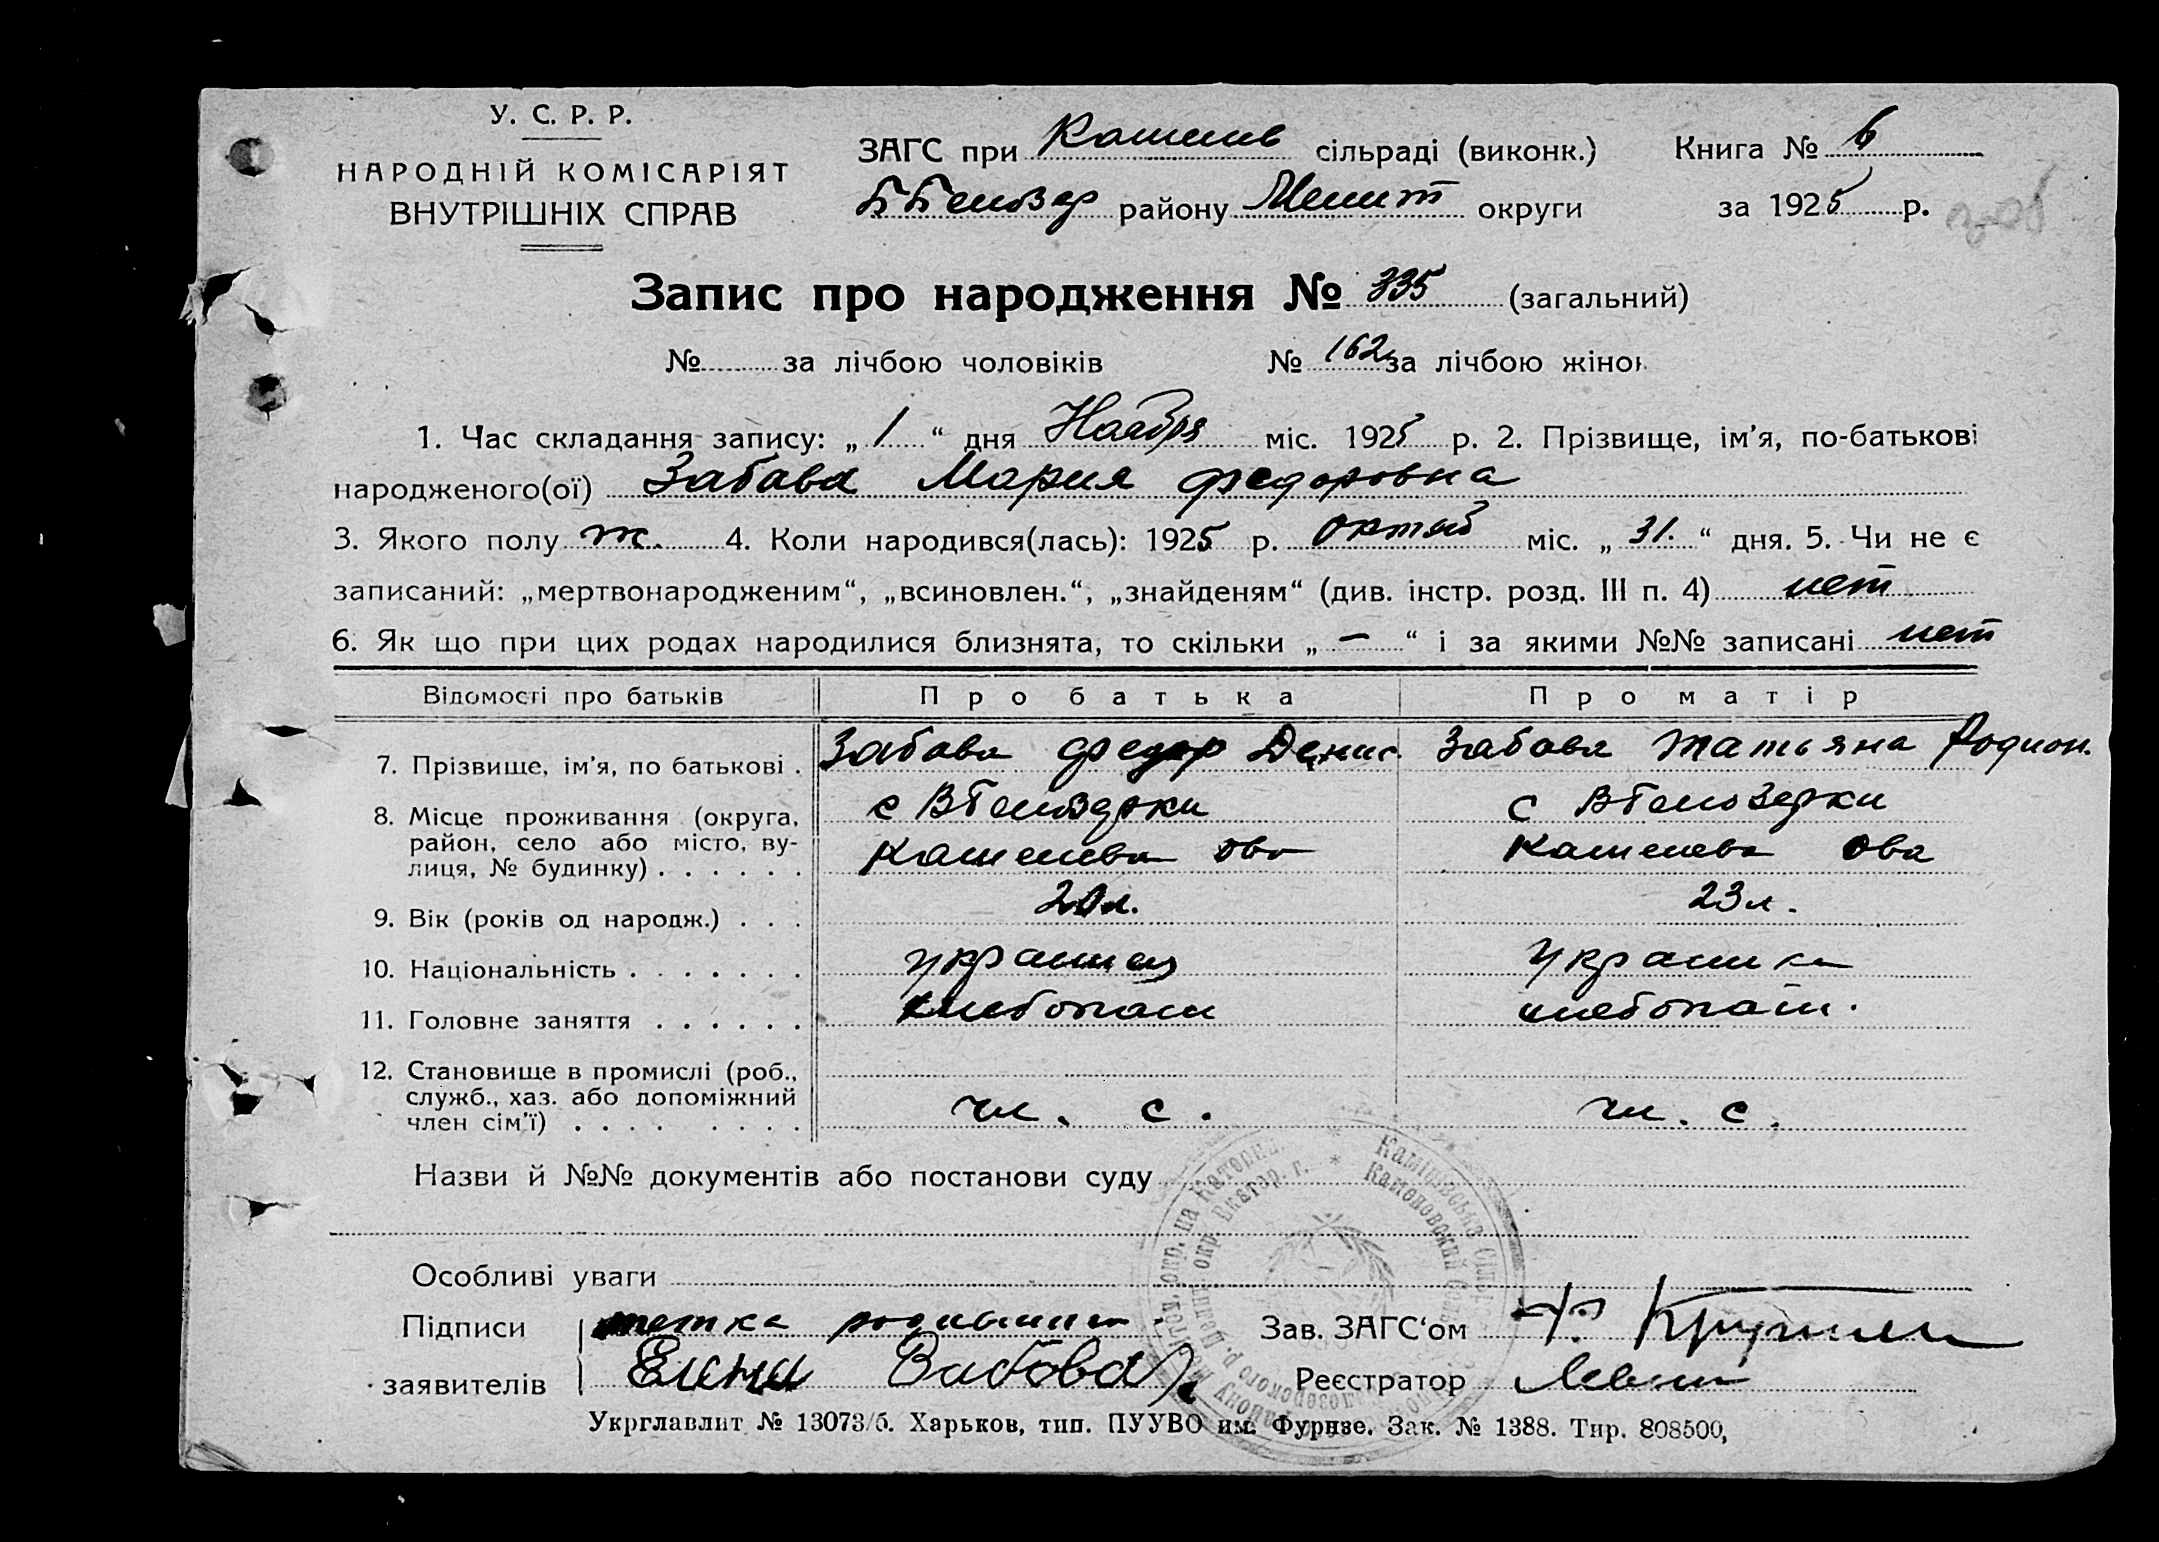 У. С. Р. Р.
НАРОДНІЙ КОМІСАРІЯТ
ВНУТРІШНІХ СПРАВ
ЗАГС при сільраді (виконк.) Книга № 6
району Мелит округи за 1925 р.
Запис про народження № 335 (загальний)
№ за лічбою чоловіків № 162 за лічбою жінок
1. Час складання запису: „ 1 “ дня Ноября міс. 1925 р. 2. Прізвище, ім’я, по-батькові
народженого(ої) Забава Мария Федоровна
3. Якого полу ж. 4. Коли народився(лась): 1925 р. октяб міс. „ 31. “ дня. 5. Чи не є
записаний: „мертвонародженим“, „всиновлен.“, „знайденям“ (див. інстр. розд. III п. 4) нет
6. Як що при цих родах народилися близнята, то скільки „ — “ і за якими №№ записані нет
Відомості про батьків Про батька Про матір
7. Прізвище, ім’я, по батькові . Забава Федор Денис. Забава Татьяна Родион.
8. Місце проживання (округа, с ВБелозерки с ВБелозерки
район, село або місто, ву-
лиця, № будинку) . . . . . .
9. Вік (років од народж.) . . . 23 л.
10. Національність . . . . . . . украинец украинка
11. Головне заняття . . . . . . хлебопаш хлебопаш.
12. Становище в промислі (роб.,
служб., хаз. або допоміжний
член сім’ї) . . . . . . . . чл. с. чл. с.
Назви й №№ документів або постанови суду
Особливі уваги
Підписи тетка Зав. ЗАГС‘ом
заявителів Елена Забова Реєстратор
Укрглавлит № 13073/б. Харьков, тип. ПУУВО им. Фурнзе. Зак. № 1388. Тир. 808500,